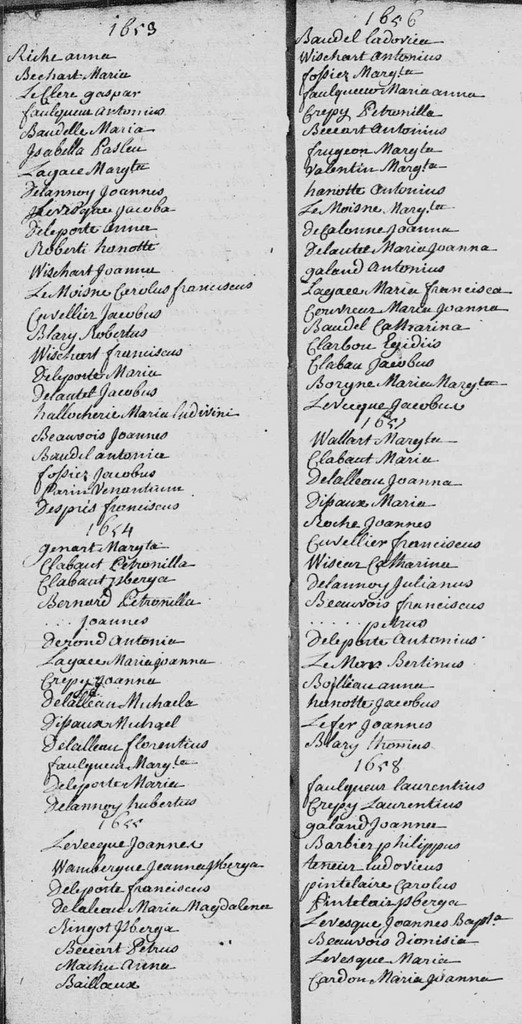 1653
Riche anna
Bechart Maria
Le Clerc gaspar
faulqueur Antonius
Baudelle Maria
Isabella Pasleu
Lagace Margta
Delannoy Joannes
Levesque Jacoba
Deleporte Anna
Roberti honotte
Wischart Joanna
Le Moisne Carolus franciscus
Cuvellier Jacobus
Blary Robertus
Wischart franciscus
Deleporte Maria
Delautel Jacobus
hallocherie Maria ludivini
Beauvois Joannes
Baudel antonia
fossiez Jacobus
Parin Venantium
Desprís franciscus
1654
genart Margta
Clabaut Petronilla
Clabaut Isberga
Bernard Petronilla
..... Joannes
Derond Antonia
Lagace Maria Joanna
Crepy Joanna
Delalleau Michaela
Dipaux Michael
Delalleau florentius
faulqueur Margta
Deleporte Maria
Delannoy hubertus
1655
Levecque Joannes
Wambergue Jeanne Isberga
Deleporte franciscus
Delaleau Maria Magdalena
Ringot Isberga
Beccart Petrus
Machu Anna
Baillaux
1656
Baudel ludovica
Wischart Antonius
fossiez Margta
faulqueur Maria anna
Crepy Petronilla
Beccart Antonius
frugeon Margta
Valentin Margta
hanotte Antonius
Le Moisne Margta
de Calonne Joanna
Delautel Maria Joanna
galand Antonius
Lagace Maria francisca
Couvreur Maria Joanna
Baudel Catharina
Clarbou Egidiis
Clabau Jacobus
Boryne Maria Margta
Levecque Jacobus
1657
Wallart Margta
Clabaut Maria
Delalleau Joanna
Dipaux Maria
Roche Joannes
Cuvellier franciscus
Wiseur Catharina
Delannoy Julianus
Beauvois franciscus
...... petrus
Deleporte Antonius
Le Mars Bertinus
Boilleau anna
honotte Jacobus
Lefer Joannes
Blary thomius
1658
faulqueur laurentius
Crepy Laurentius
galand Joanna
Barbier philippus
teneur ludovicus
pintelaire Carolus
Pintelair Isberga
Levesque Joannes Bapta
Beauvois dionisia
Levesque Maria
Cardon Maria Joanna